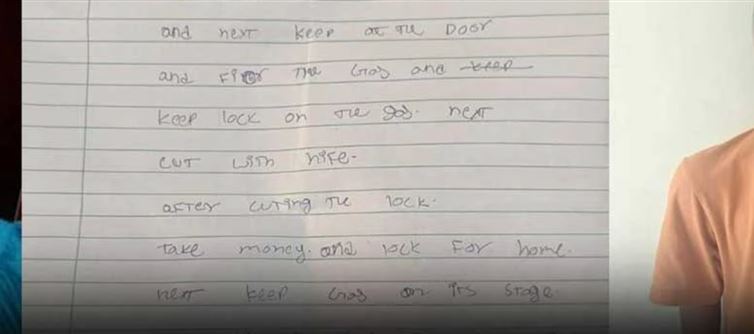 and next keep at the Door
and Fior the Gas and keep
keep lock on the gas. next
cut with nife.
after cuting the lock.
take money. and lock For home.
next keep Gas on its stage.